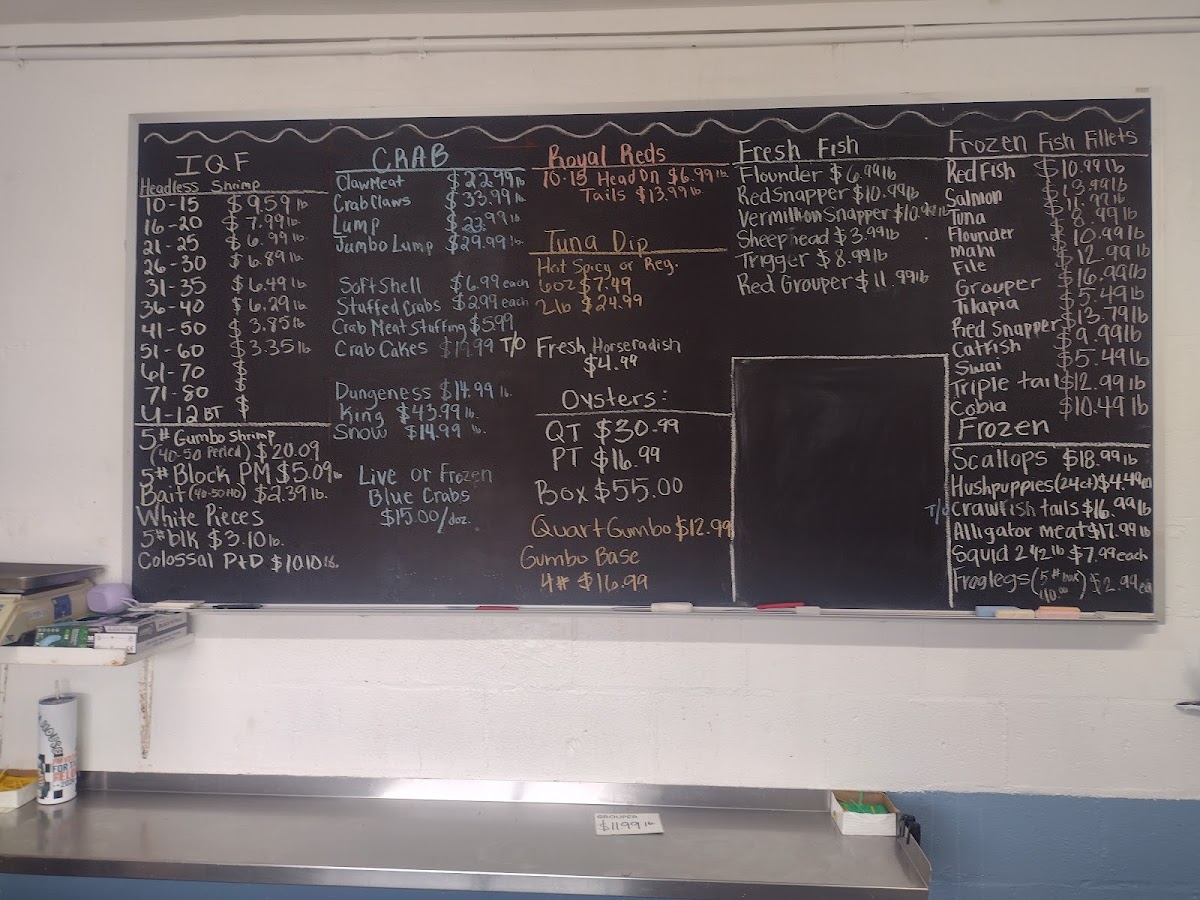 IQF
Headless Shrimp
10-15 $9.59 lb
16-20 $7.99 lb
21-25 $6.99 lb
26-30 $6.89 lb.
31-35 $6.49 lb
36-40 $6.29 lb
41-50 $3.85 lb
51-60 $3.35 lb
61-70 $
71-80 $
U-12 BT $
5# Gumbo Shrimp
(40-50 Peeled) $20.09
5# Block PM $5.09 lb
Bait (40-50 HO) $2.39 lb.
White Pieces
5# blk $3.10 lb.
Colossal P+D $10.10 lb.
CRAB
Claw Meat $22.99 lb
Crab Claws $33.99 lb
Lump $23.99 lb
Jumbo Lump $29.99 lb.
Soft Shell $6.99 each
Stuffed Crabs $2.99 each
Crab Meat Stuffing $5.99
Crab Cakes T/O
Dungeness $14.99 lb.
King $43.99 lb.
Snow $14.99 lb.
Live or Frozen
Blue Crabs
$15.00/doz.
Royal Reds
10-15 Head On $6.99 lb
Tails $13.99 lb
Tuna Dip
Hot Spicy or Reg.
6oz $7.49
2lb $24.99
Fresh Horseradish
$4.99
Oysters:
QT $30.99
PT $16.99
Box $55.00
Quart Gumbo $12.99
Gumbo Base
4# $16.99
Fresh Fish
Flounder $6.99 lb
Red Snapper $10.99 lb
Vermillion Snapper $10.99 lb
Sheephead $3.99 lb
Trigger $8.99 lb
Red Grouper $11.99 lb
Frozen Fish Fillets
Red Fish $10.99 lb
Salmon $13.99 lb
Tuna $11.99 lb
Flounder $8.99 lb
Mahi $10.99 lb
File $12.99 lb
Grouper $16.99 lb
Tilapia $5.49 lb
Red Snapper $13.79 lb
Catfish $9.99 lb
Swai $5.49 lb
Triple tail $12.99 lb
Cobia $10.49 lb
Frozen
Scallops $18.99 lb
Hushpuppies (24ct) $4.49
T/O Crawfish tails $16.99 lb
Alligator meat $17.99 lb
Squid 2 1/2 lb $7.99 each
Froglegs (5# box) $2.99 ea
GROUPER
$11.99 lb